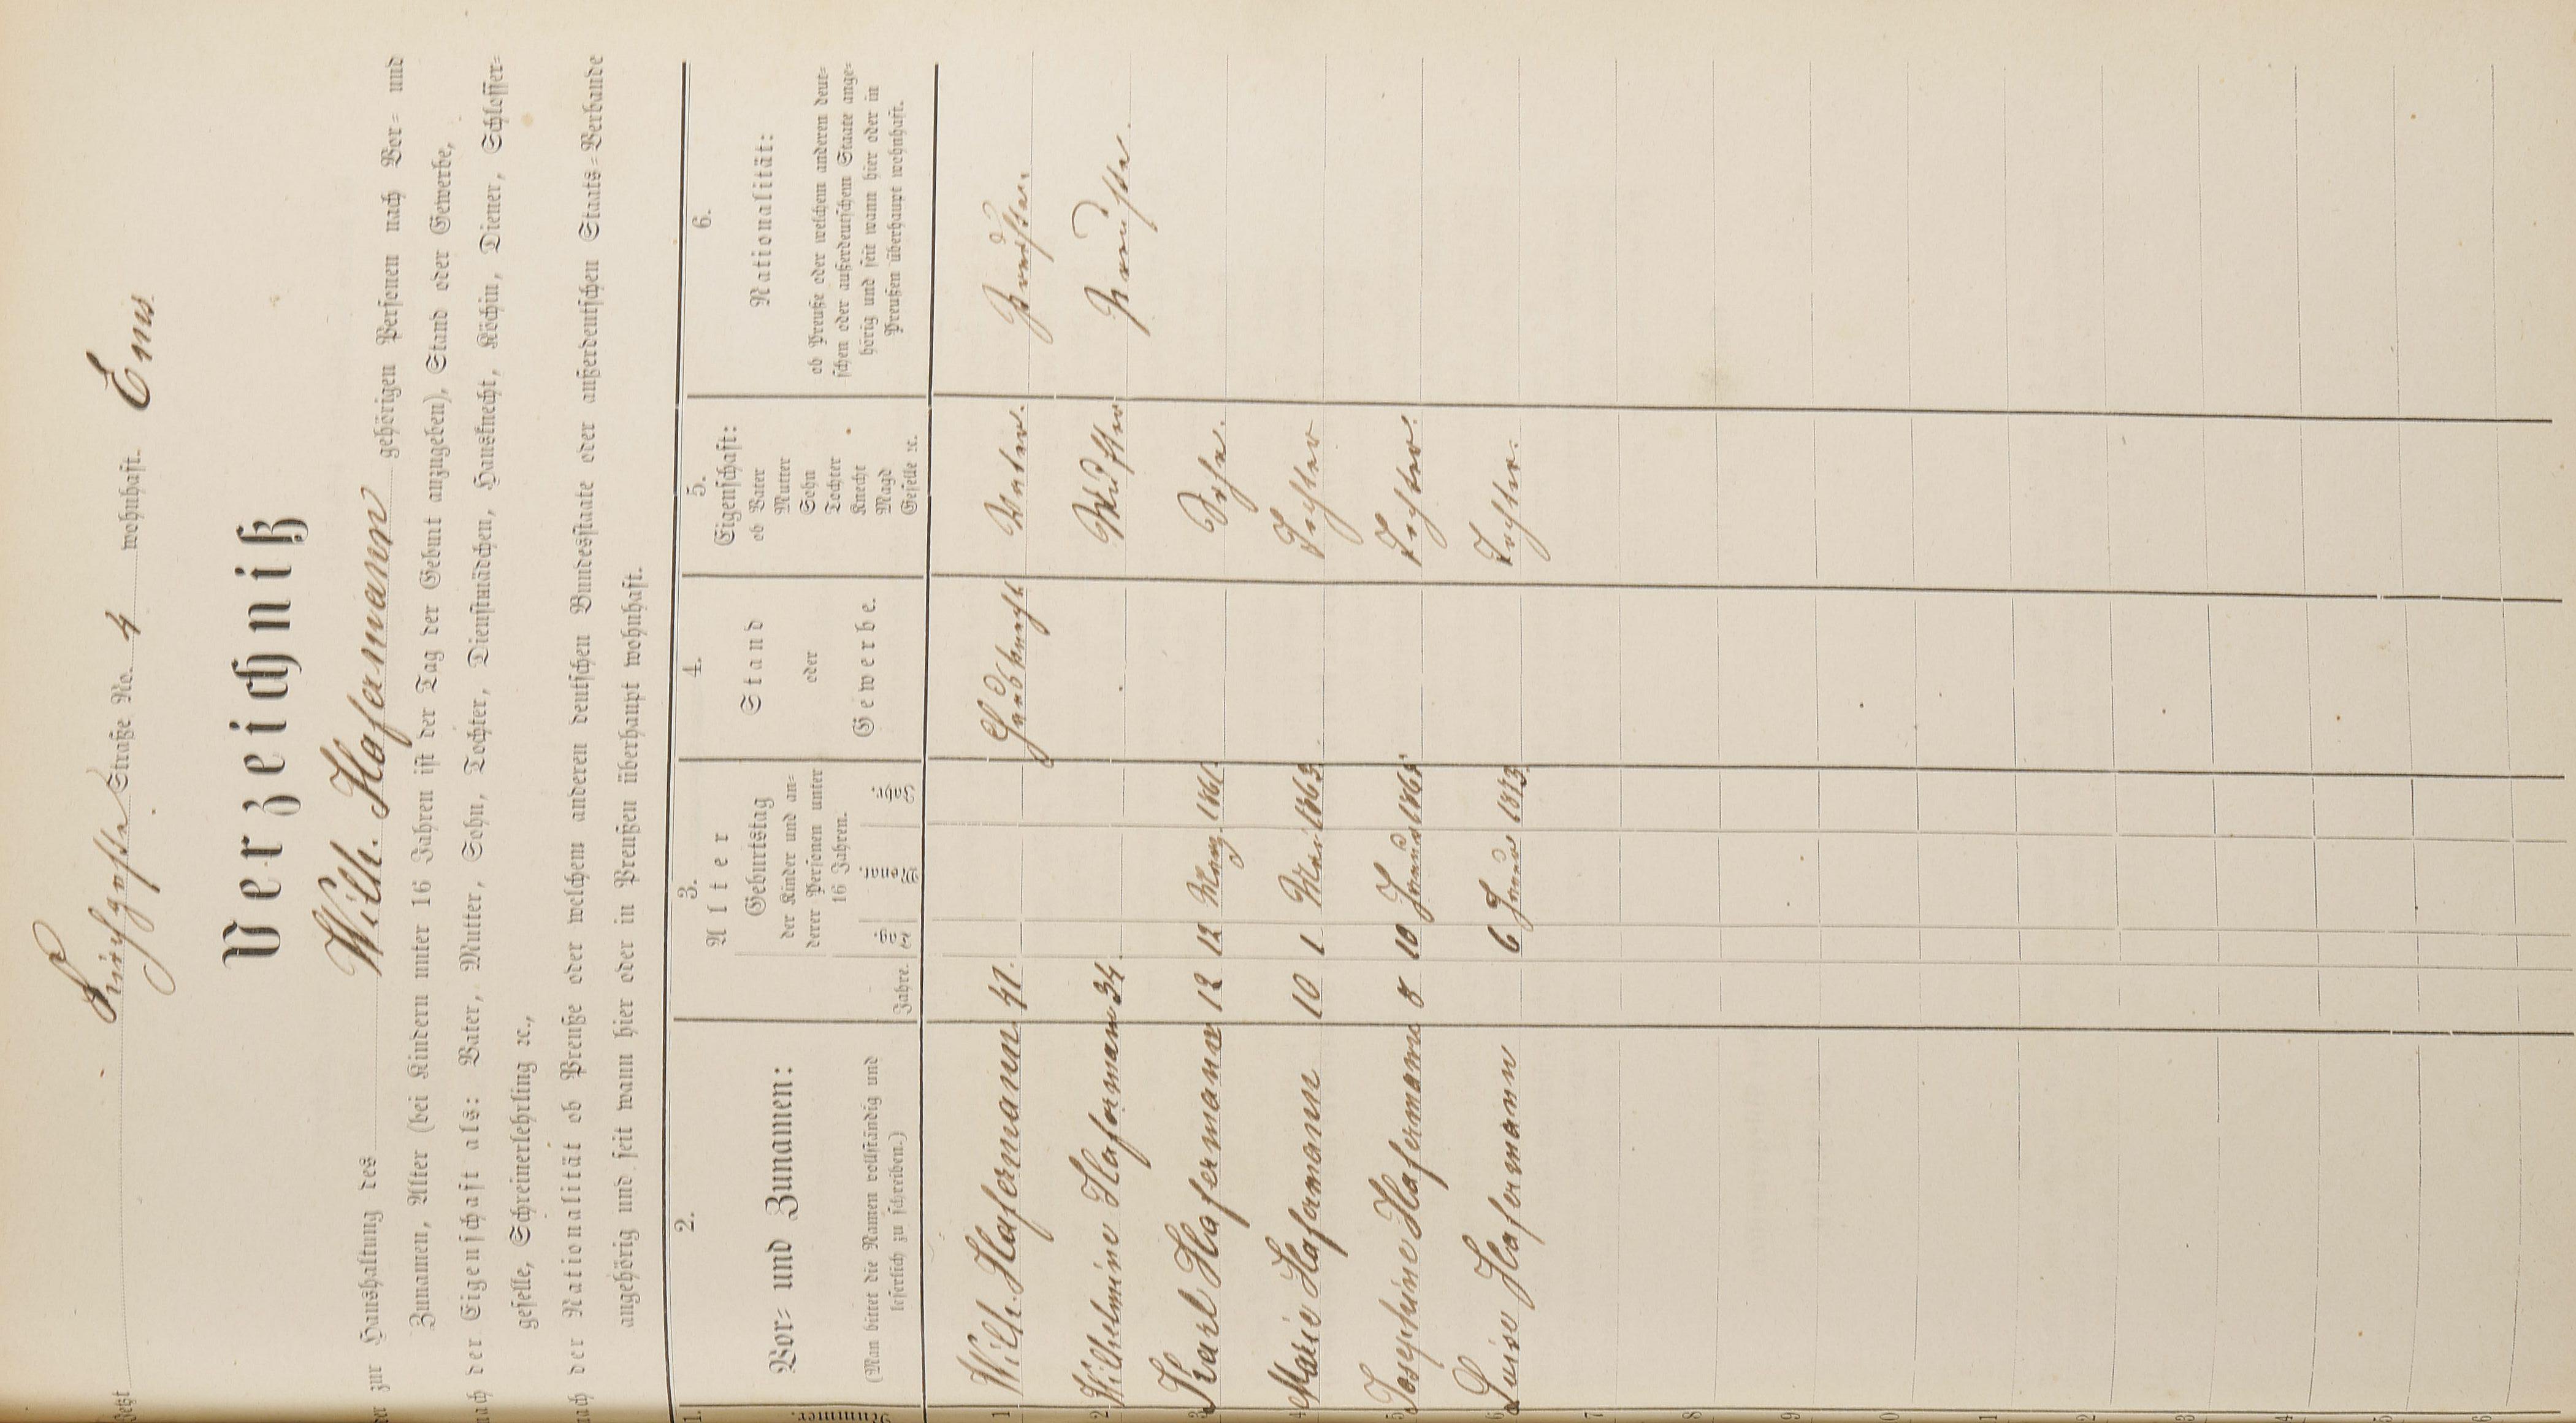 Jetzt Kirchgasse Straße No. 4 wohnhaft. Ems
Verzeichniß
der zur Haushaltung des Wilh. Hafermann gehörigen Personen nach Vor- und
Zunamen, Alter (bei Kindern unter 16 Jahren ist der Tag der Geburt anzugeben), Stand oder Gewerbe,
nach der Eigenschaft als: Vater, Mutter, Sohn, Tochter, Dienstmädchen, Hausknecht, Köchin, Diener, Schlosser-
geselle, Schreinerlehrling ꝛc.,
nach der Nationalität ob Preuße oder welchem anderen deutschen Bundesstaate oder außerdeutschen Staats-Verbande
angehörig und seit wann hier oder in Preußen überhaupt wohnhaft.
1. 2. 3. 4. 5. 6.
Nummer. Vor- und Zunamen: Alter Stand oder Gewerbe. Eigenschaft: Nationalität:
(Man bittet die Namen vollständig und
leserlich zu schreiben.)
Jahre. Geburtstag
der Kinder und an-
derer Personen unter
16 Jahren.
Tag. Monat. Jahr.
ob Vater
Mutter
Sohn
Tochter
Knecht
Magd
Geselle ꝛc.
ob Preuße oder welchem anderen deut-
schen oder außerdeutschem Staate ange-
hörig und seit wann hier oder in
Preußen überhaupt wohnhaft.
1 Wilh. Hafermann 41. Hausknecht Vater. Preuße.
2 Wilhelmine Hafermann 34. Mutter Preuße.
3 Karl Hafermann 12 12 März. 1861. Sohn.
4 Marie Hafermann 10 1 Mai 1863. Tochter
5 Josephine Hafermann 8 10 Januar 1865 Tochter.
6 Luise Hafermann 6 Januar 1873. Tochter.
7
8
9
0
1
2
3
4
5
6